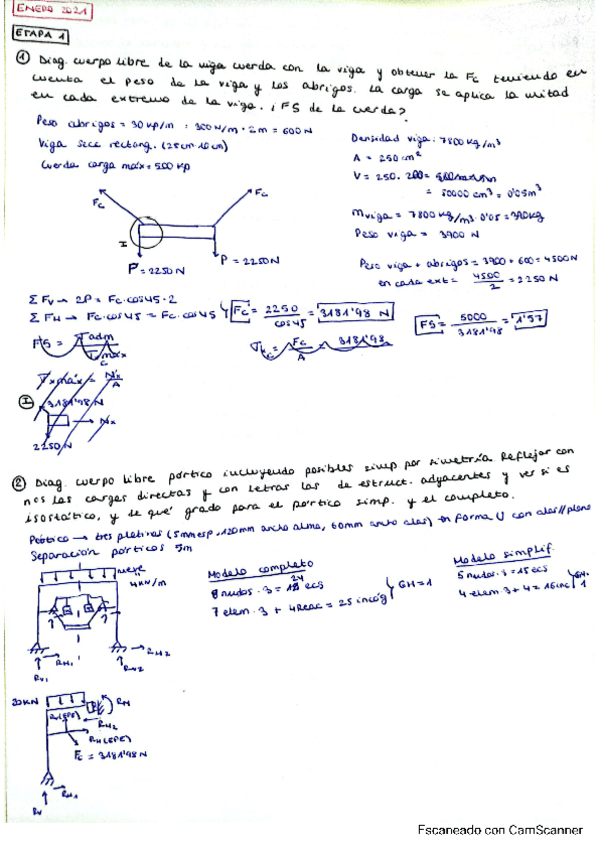 ENERO 2021
ETAPA 1
① Diag. cuerpo libre de la viga cuerda con la viga y obtener la Fc teniendo en
cuenta el peso de la viga y los abrigos. La carga se aplica la mitad
en cada extremo de la viga. ¿FS de la cuerda?
Peso abrigos = 30 kp/m = 300 N/m · 2m = 600 N
Viga secc rectang. (25cm·10cm)
Cuerda carga máx = 500 kp
Densidad viga: 7800 kg/m³
A = 250 cm²
V = 250 · 200 =
= 50000 cm³ = 0'05 m³
mviga = 7800 kg/m³ · 0'05 = 390kg
Peso viga = 3900 N
Peso viga + abrigos = 3900 + 600 = 4500N
en cada ext = 4500/2 = 2250 N
Fc
Fc
I
P = 2250 N
P = 2250 N
Σ Fv → 2P = Fc·cos45·2
Σ FH → Fc·cos45 = Fc·cos45
Fc = 2250/cos45 = 3181'98 N
FS = 5000/3181'98 = 1'57
FS = σadm/σmáx
σxc = Fc/A = 3181'98
σxmáx = Nx/A
I
3181'98 N
Nx
2250 N
② Diag. cuerpo libre pórtico incluyendo posibles simp por simetría. Reflejar con
nos las cargas directas y con letras las de estruct. adyacentes y ver si es
isostático, y de qué grado para el pórtico simp. y el completo.
Pórtico → tres pletinas (5mm esp, 120mm ancho alma, 60mm ancho alas) en forma U con alas//plano
Separación pórticos 5m
nieve
4KN/m
RH1
RV1
RH2
RV2
Modelo completo
8 nudos · 3 = 24 ecs
7 elem · 3 + 4Reac = 25 incóg
GH=1
Modelo simplif.
5 nudos · 3 = 15 ecs
4 elem · 3 + 4 = 16 inc
GH = 1
20 KN
RM
RH2
RV(EPE)
RH(EPE)
Fc = 3181'98 N
RH1
RV
Escaneado con CamScanner